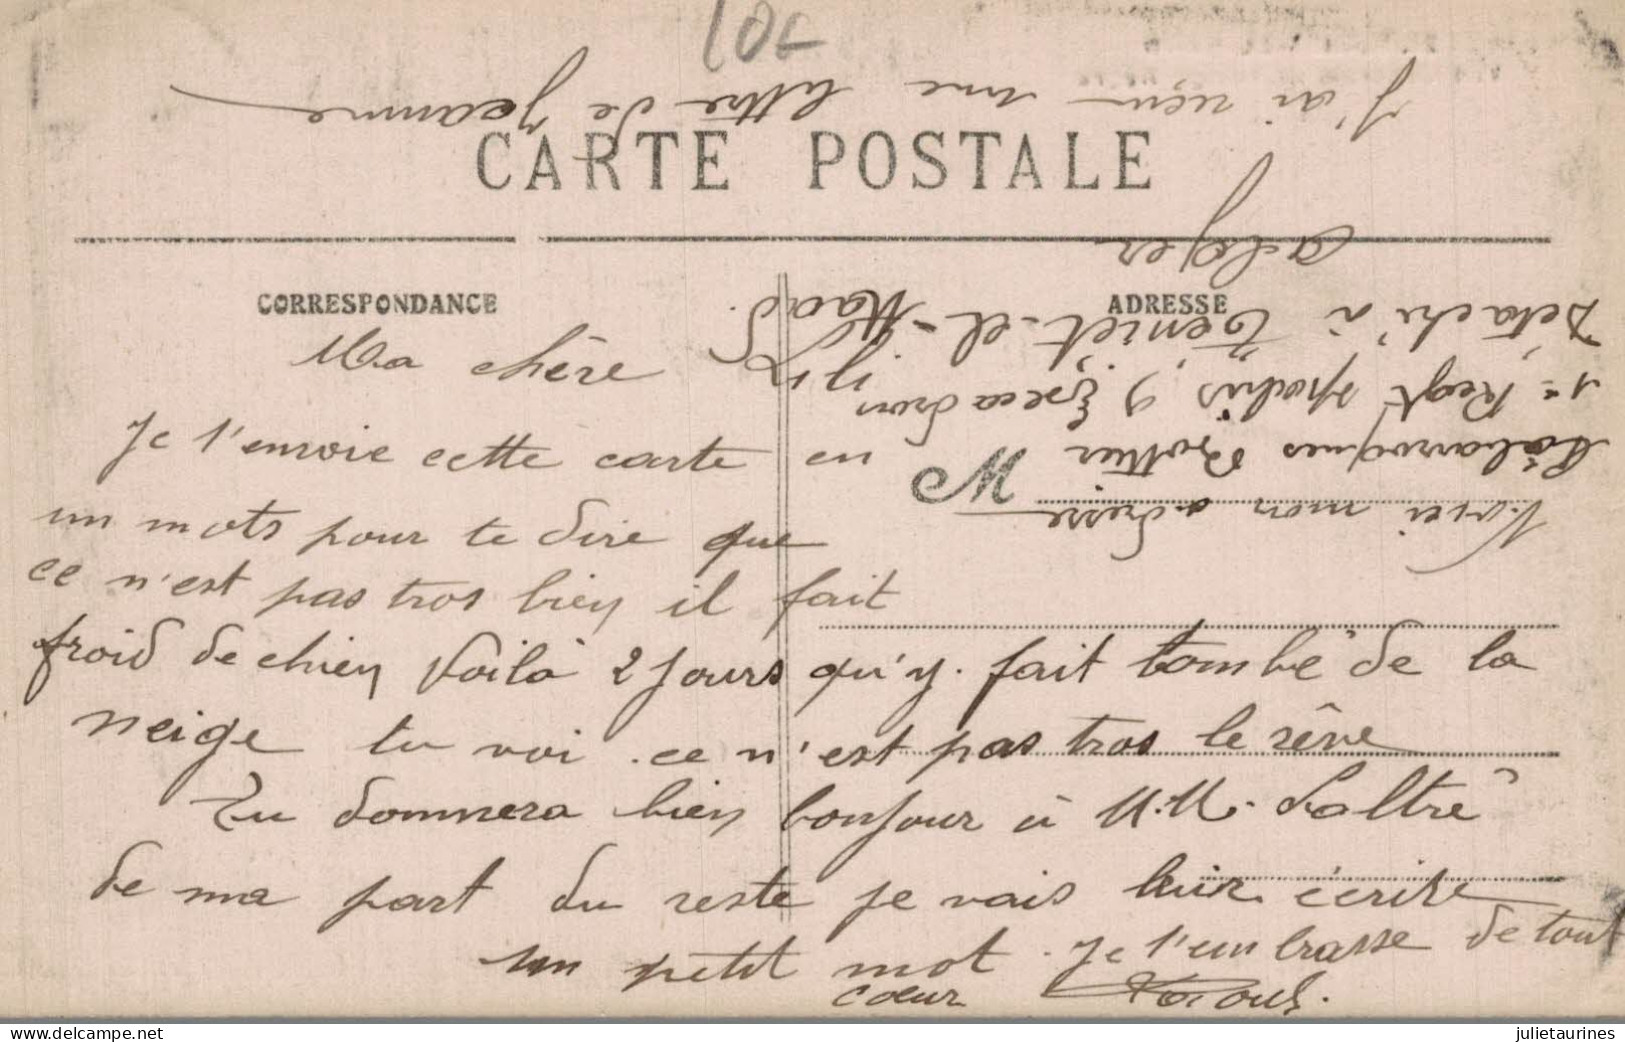 10c
CARTE POSTALE
CORRESPONDANCE
ADRESSE
M
Ma chère
Je t'envoie cette carte en
un mots pour te dire que
ce n'est pas tros bien il fait
froid de chien Voilà 2 Jours qu'y. fait tombé de la
neige tu voi . ce n'est pas tros le rêve
Tu donnera bien bonjour à M.M. Laltré
de ma part du reste je vais leur écrire
un petit mot . Je t'embrasse de tout
cœur
Voici mon adresse
Brottier
1e Regt spahis, 9 Escadron
Détaché à Teniet-el-Haad.
Alger
J'ai reçu une lettre de Jeanne
delcampe.net
julietaurines